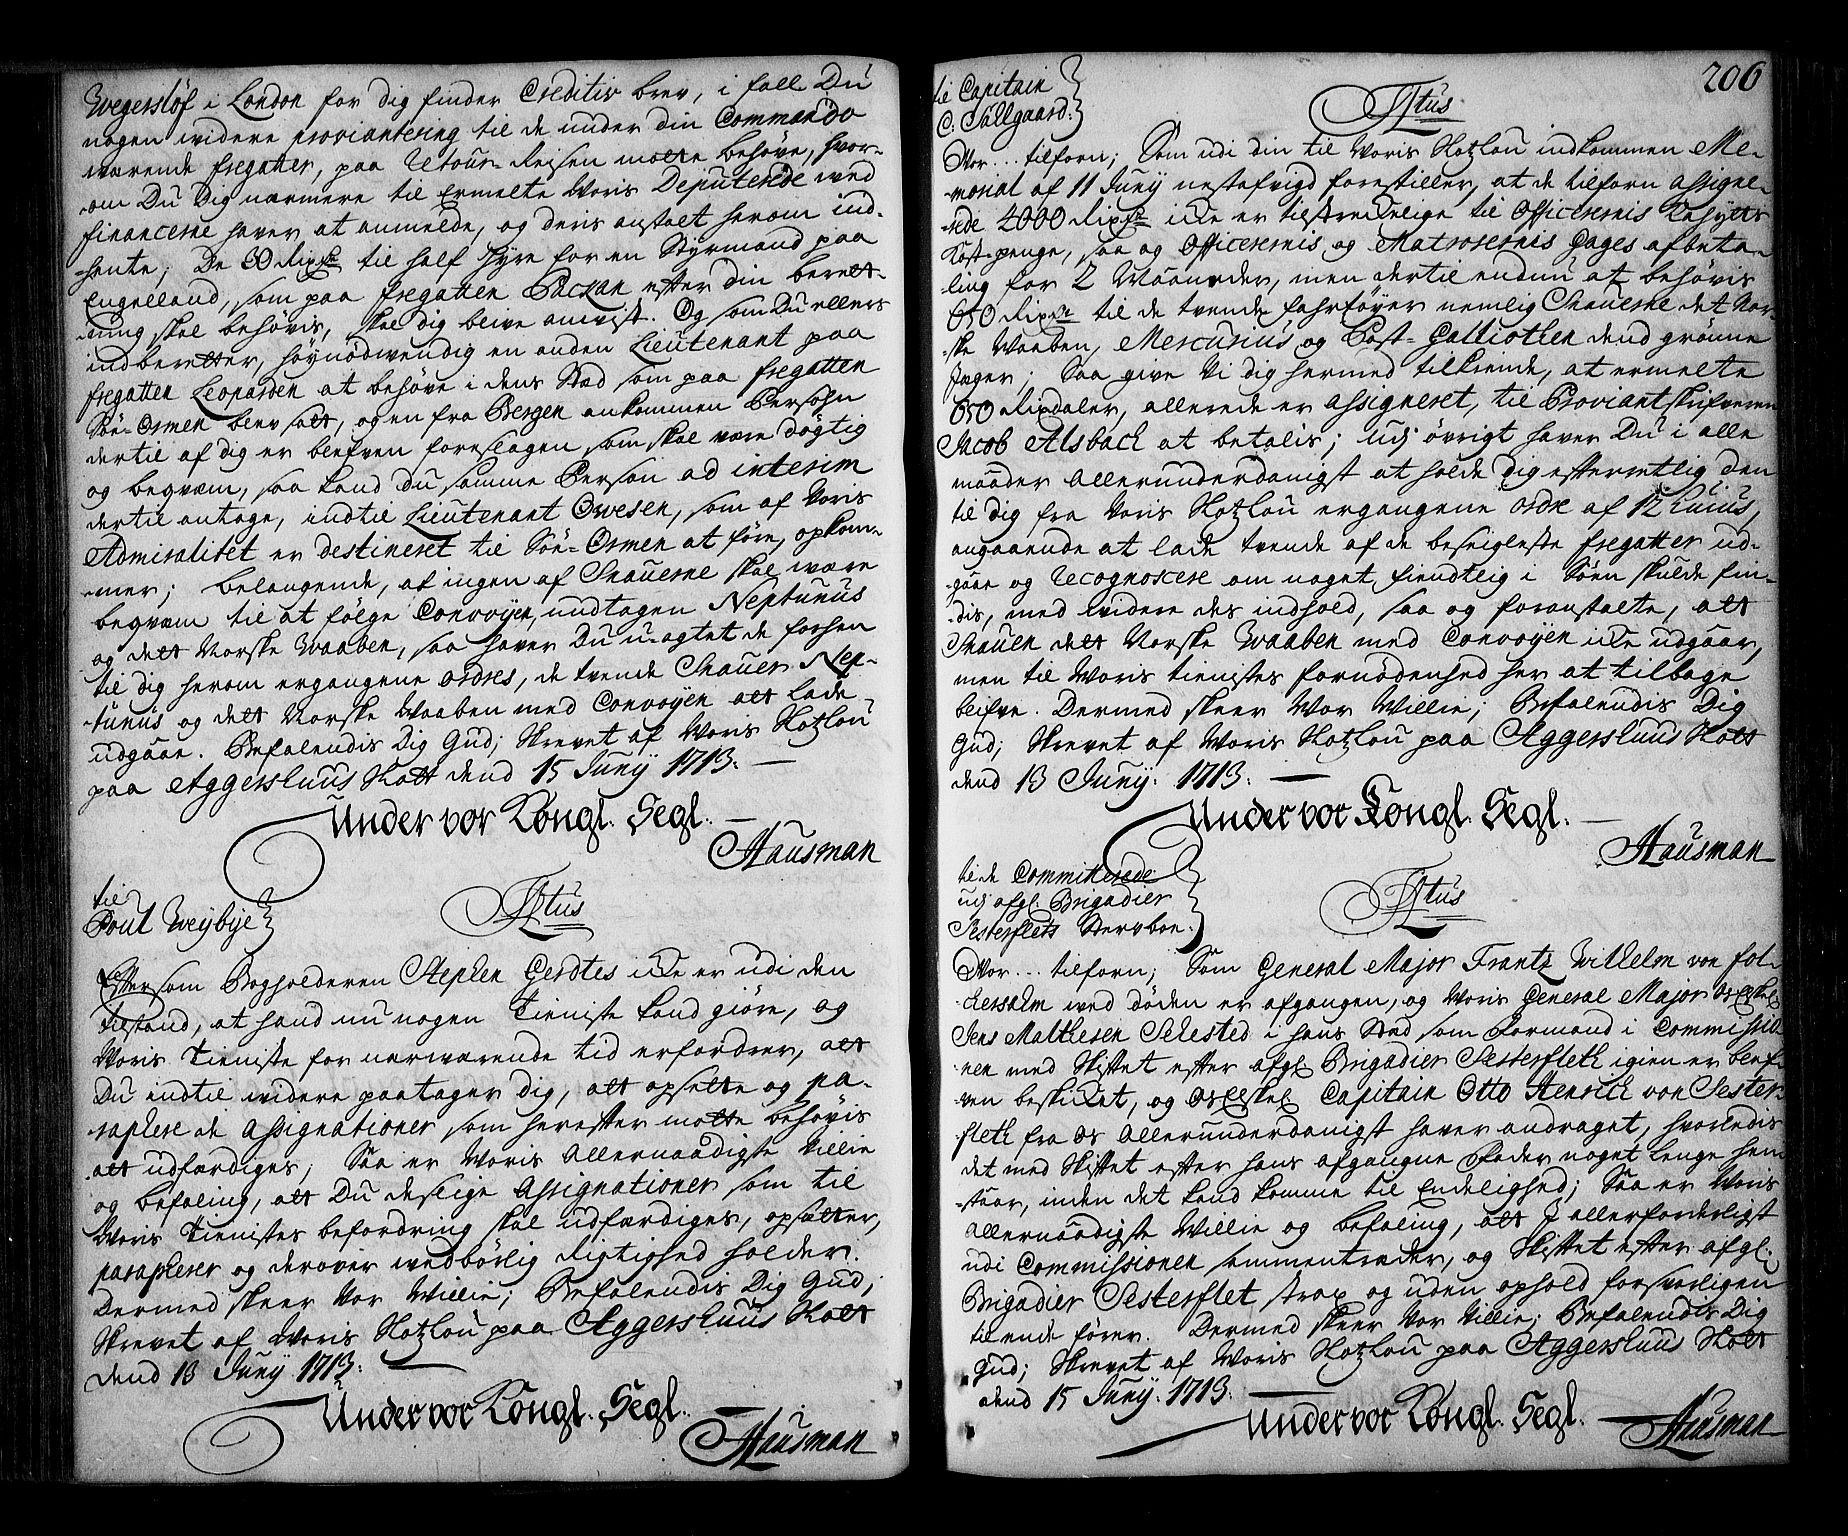 Wegersløf i London for dig finder Creditiv brev, i fall Du
nogen widere proviantering til de under din Commando
wærende fregatter, paa Retour-Reisen motte behøve, hvor-
om Du Dig nærmere til Ermelte Woris Deputerede wed
financerne hawer at anmelde, og deris anstalt herom ind-
hente; De 60 Rixdr til half Hyre for en Styrmand paa
Engelland, som paa fregatten Pacsan efter din beret-
ning skal behøvis, skal dig blive anvist. Og som Du ellers
indberetter, høynødwendig en anden Lieutenant paa
fregatten Leoparden at behøve i dens Stad som paa fregatten
Søe-Ormen blev satt, og en fra Bergen ankommen Persohn
dertil af dig er blefven foreslagen, som skal være døgtig
og beqvem, saa kand Du samme Person ad interim
dertil antage, indtil Lieutenant Owesen, som af Voris
Admiralitet er destineret til Søe-Ormen at føre, opkom-
mer; belangende, at ingen af Snauerne skal wære
begvæm til at følge Convoyen, undtagen Neptunus
og dett Norske Waaben, saa hawer Du u-agtet de forhen
til dig herom ergangene ordres, de tvende Snauer Nep-
tunus og dett Norske Waaben med Convoyen att lade
udgaae. Befalendis Dig Gud; Skrevet af Woris Slotzlou
paa Aggershuus Slott dend 15 Juny 1713.
Under vor Kongl. Segl.
Hausman
til
Poul Weybye
Titus
Eftersom Bogholderen Stephen Gerdtes icke er udi den
tilstand, at hand nu nogen Tieniste kand giøre, og
Woris Tieniste for nærwærende tid erfordrer, att
Du indtil widere paatager dig, att opsette og pa-
raphere de Assignationer som herefter motte behøvis
att udfærdiges; Saa er Woris Allernaadigste Villie
og befaling, att Du deslige Assignationer som til
Woris Tienistes befordring skal udfærdiges, opsætter,
parapherer og derover wedbørlig Rigtighed holder.
Dermed skeer Vor Willie; Befalendis Dig Gud;
Skrevet af Woris Slotzlou paa Aggershuus Slott
dend 13 Juny 1713.
Under vor Kongl. Segl.
Hausman
206
til Capitain
C: Tällgaard.
Titus
Vor... tilforn; Som udi din til Woris Slotzlou indkommen Me-
morial af 11 Juny nestafvigd forestiller, at de tilforn assigne-
rede 4000 Rixdr icke er tilstreckelige til Officerernis Kahytts
Kost-penge, saa og Officerernis og Matrosernis Gages afbeta-
ling for 2 Maaneder, men dertil endnu at behøvis
650 Rixdr til de tvende fahrtøyer nemlig Snauerne det Nor-
ske Waaben, Mercurius og Post-Galliotten dend grønne
Jæger; Saa give Vi dig hermed tilkiende, at ermelte
650 Rixdaler, allerede er assigneret, til Proviantskrifveren
Jacob Alsback at betalis; udj øvrigt haver Du i alle
maader Allerunderdanigst at holde Dig efterretlig den
til dig fra Voris Slotzlou ergangene ordre af 12 huius,
angaaende at lade tvende af de beseigleste fregatter ud-
gaae og recognoscere om noget fiendtlig i Søen skulde fin-
dis, med widere des indhold, saa og foranstalte, att
Snauen dett Norske Waaben med Convoyen icke udgaar,
men til Woris tienistes fornødenhed her at tilbage
blifve. Dermed skeer Wor Willie; Befalendis Dig
Gud; Skrevet af Woris Slotzlou paa Aggershuus Slott
dend 13 Juny. 1713.
Under vor Kongl. Segl.
Hausman
til de Committerede
udj afgl. Brigadier
Sesterflets Sterwboe.
Titus
Vor... tilforn; Som General Major Frantz Wilhelm von fol-
ckersahm wed døden er afgangen, og Woris General Major Os Elskel
Jens Mathesen Sehested i hans Stad som Formand i Commissio-
nen med Skiftet efter afgl Brigadier Sesterfleth igien er blef-
ven beskicket, og Os Elskel Capitain Otto Henrich von Sester-
fleth fra Os Allerunderdanigst hawer andraget, hvorledis
det med Skiftet efter hans afgangne Fader noget lenge hen
staar, inden det kand komme til Endelighed; Saa er Woris
Allernaadigste Willie og befaling, att I allerforderligst
udi Commissionen sammentræder, og Skiftet efter afgl.
Brigadier Sesterflet strax og uden ophold forsvarligen
til ende fører. Dermed skeer Vor Villie; Befalendis Dig
Gud; Skrewet af Woris Slotzlou paa Aggershuus Slott
dend 15 Juny. 1713.
Under vor Kongl. Segl.
Hausman